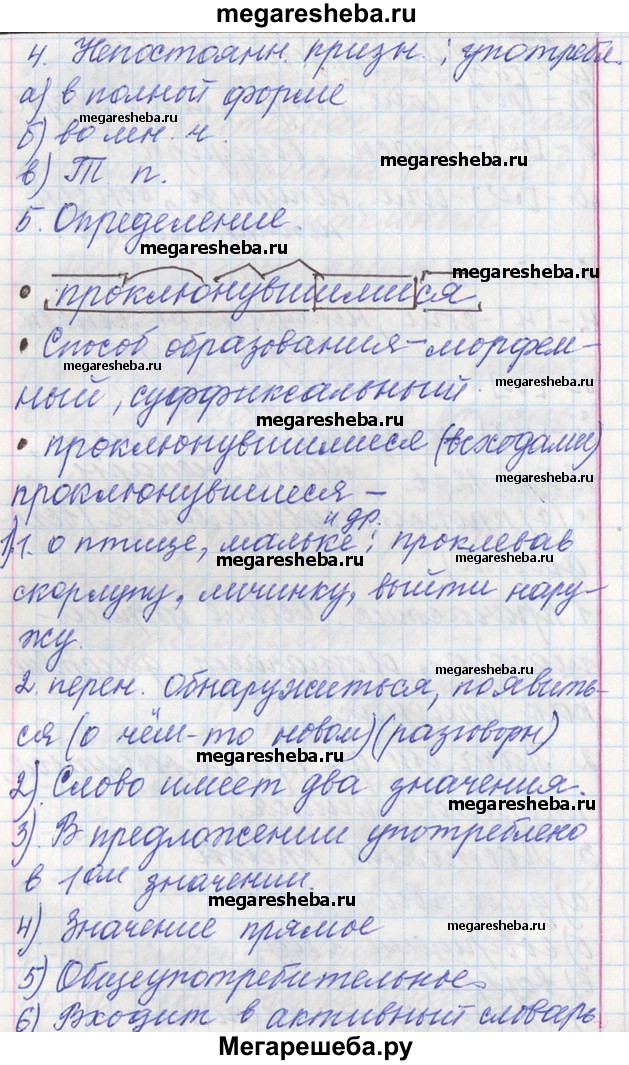 megaresheba.ru
4. Непостоянн. призн.; употребл.
а) в полной форме
б) во мн. ч.
megaresheba.ru
в) Т. п.
megaresheba.ru
5. Определение.
megaresheba.ru
• проклюнувшимися
• Способ образования – морфем-
megaresheba.ru
megaresheba.ru
ный, суффиксальный.
megaresheba.ru
• проклюнувшимися (всходами)
megaresheba.ru
проклюнувшиеся –
и др.
1) 1. о птице, мальке: проклевав
megaresheba.ru
megaresheba.ru
скорлупу, личинку, выйти нару-
жу.
megaresheba.ru
2. перен. Обнаружиться, появить-
ся (о чём-то новом) (разговорн)
megaresheba.ru
2) Слово имеет два значения.
megaresheba.ru
3) В предложении употреблено
в 1ом значении.
megaresheba.ru
4) Значение прямое
megaresheba.ru
5) Общеупотребительное
6) Входит в активный словарь
Мегарешеба.ру